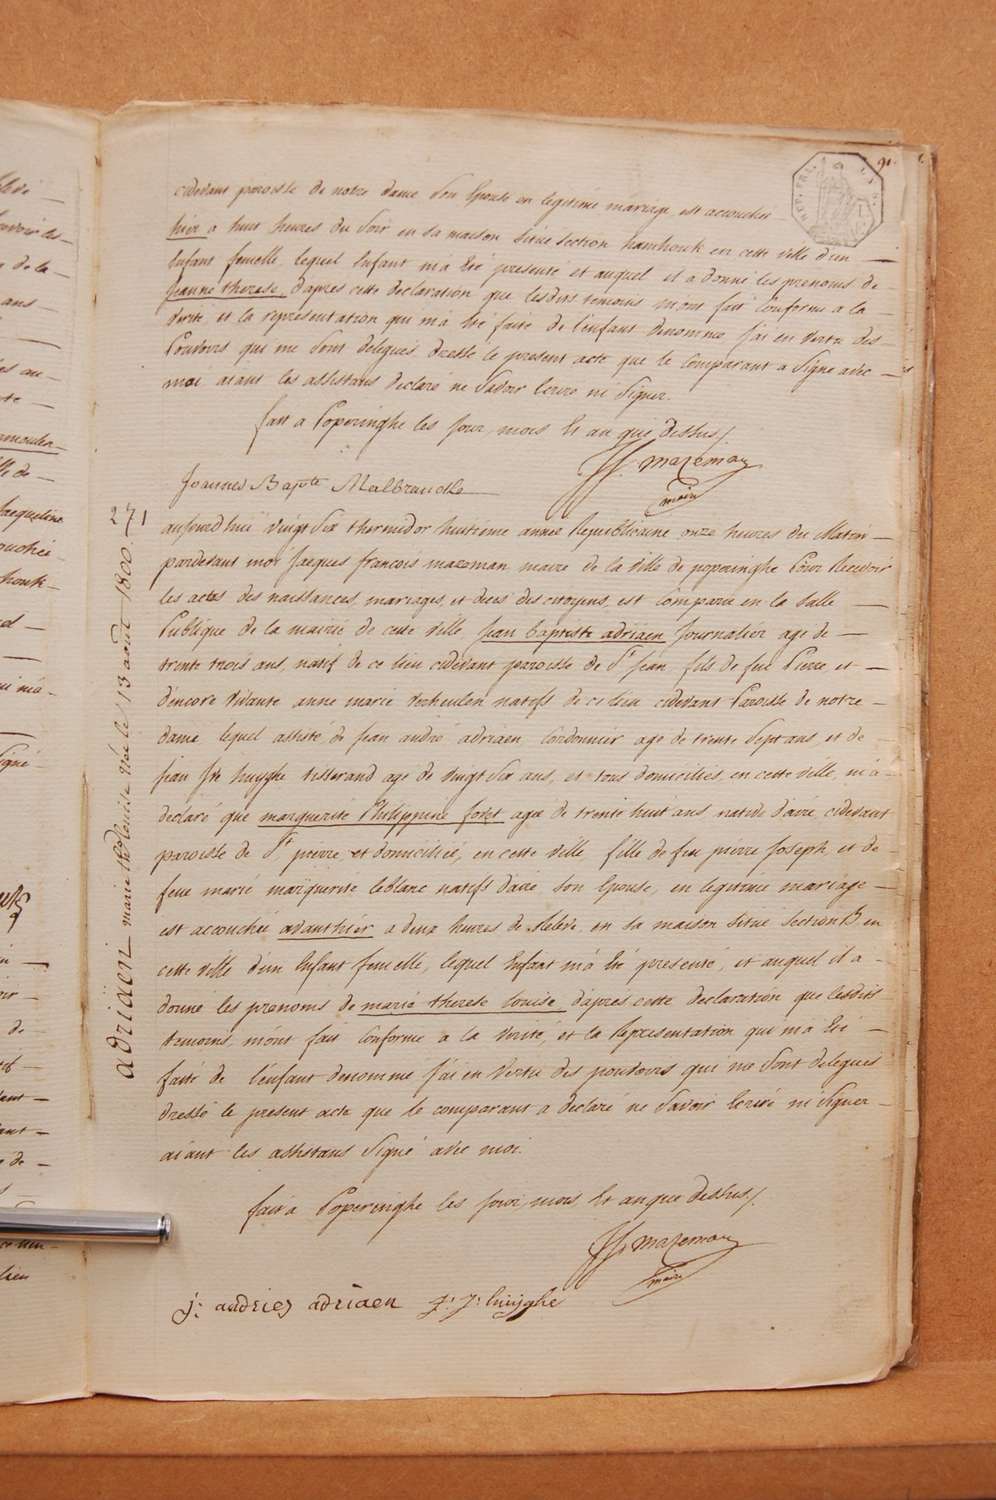 91.
cidevant paroisse de notre dame son Epouse en legitime mariage, est accouchée
hier a huit heures du soir en sa maison situé section hamhouk en cette ville d'un
Enfant femelle, lequel Enfant m'a été presenté et auquel il a donné les prenoms de
jeanne therese, d'après cette declaration que lesdits temoins m'ont fait Conforme a la
verité, et la représentation qui m'a été faite de l'enfant denommé j'ai en vertu des
Pouvoirs qui me sont delegués dressé le present acte que le comparant a signé avec
moi aiant les assistans declaré ne savoir Ecrire ni signer.
fait a Poperinghe les jour, mois Et an que dessus./.
J. f. mazeman
maire
Joannes Bapte Malbrancke
271
adriaen marie th. louise née le 13 août 1800.
aujourd'hui vingt six thermidor huitieme année Republicaine onze heures du Matin
pardevant moi Jacques françois mazeman maire de la ville de poperinghe Pour Recevoir
les actes des naissances, mariages, et deces des citoyens, est Comparu en la salle
Publique de la mairie de cette ville, jean baptiste adriaen journalier agé de
trente trois ans, natif de ce lieu cidevant paroisse de St jean, fils de feu Pierre et
d'encore vivante anne marie verkeulen natifs de ce lieu cidevant Paroisse de notre
dame, lequel assisté de jean andré adriaen Cordonnier agé de trente Sept ans, et de
jean fr. huyghe tisserand agé de vingt six ans, et tous domiciliés, en cette ville, m'a
declaré que marguerite Philippine folet agée de trente huit ans, native d'aire, cidevant
paroisse de St pierre, et domiciliée, en cette ville, fille de feu pierre Joseph et de
feue marie marguerite leblanc natifs d'aire son Epouse, en legitime mariage
est accouchée avanthier a deux heures de relevée, en sa maison situé section B en
cette ville d'un Enfant femelle, lequel Enfant m'a été presenté, et auquel il a
donné les prenoms de marie therese louise d'après cette declaration que lesdits
temoins m'ont fait Conforme a la verité, et la Représentation qui m'a été
faite de l'enfant denommé j'ai en vertu des pouvoirs qui me sont delegués
dressé le present acte que le comparant a declaré ne savoir Ecrire ni signer
aiant les assistans signé avec moi.
fait a Poperinghe les jour, mois Et an que dessus./.
J. f. mazeman
maire
j: andries adriaen J: f: huijghe